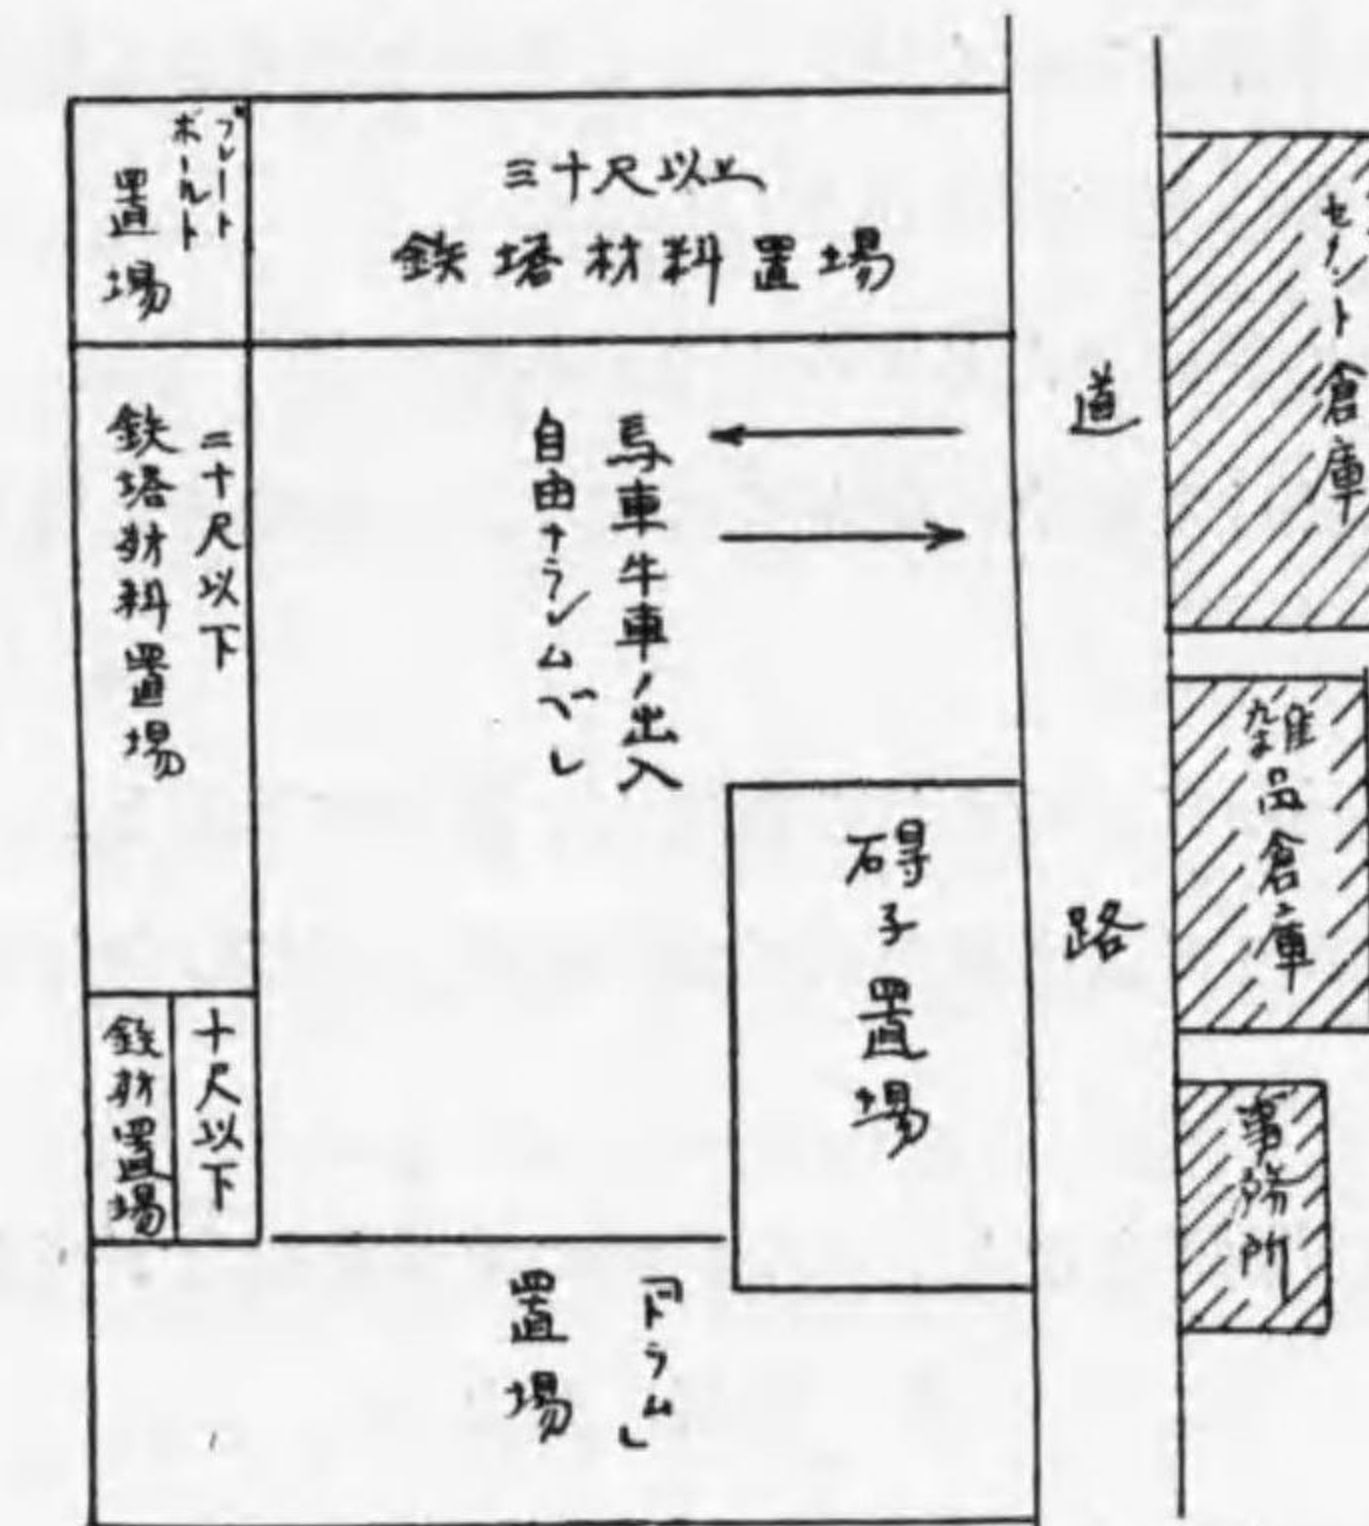 プレート
ボールト
置場
三十尺以上
鉄塔材料置場
二十尺以下
鉄塔材料置場
十尺以下
鉄材置場
馬車牛車ノ出入
自由ナラシムベシ
碍子置場
「ドラム」
置場
道路
セメント倉庫
雑品倉庫
事務所